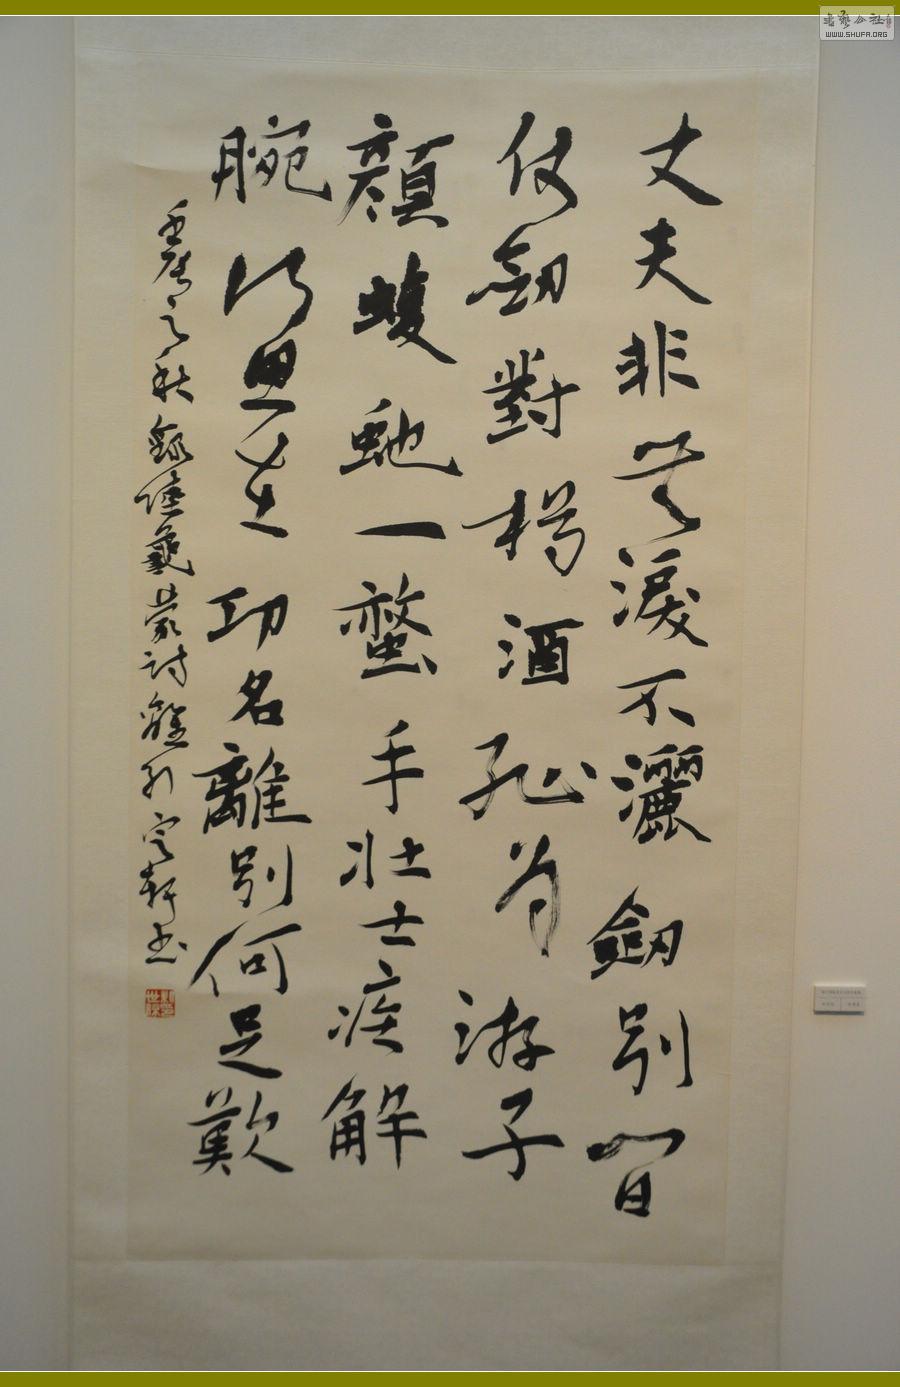 丈夫非無淚不灑劒別間
仗劒對樽酒恥為游子
顏蝮虵一螫手壯士疾解
腕所思在功名離別何足歎
壬唐之秋錄陸龜蒙詩離別定軒書
書藝公社
WWW.SHUFA.ORG